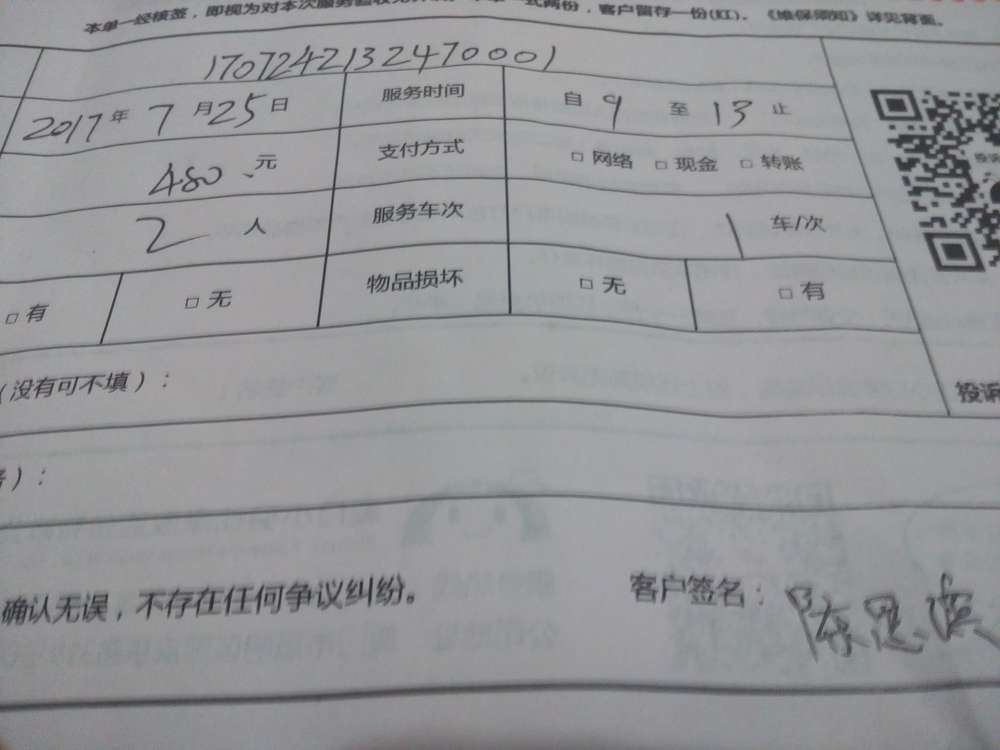 本单一经核签，即视为对本次服务验收
式两份，客户留存一份(红)。《维保须知》详见背面。
1707242132470001
2017年7月25日 服务时间 自9至13止
480元 支付方式 □网络 □现金 □转账
2人 服务车次 1车/次
□有 □无 物品损坏 □无 □有
（没有可不填）： 投诉
）：
确认无误，不存在任何争议纠纷。 客户签名：陈思